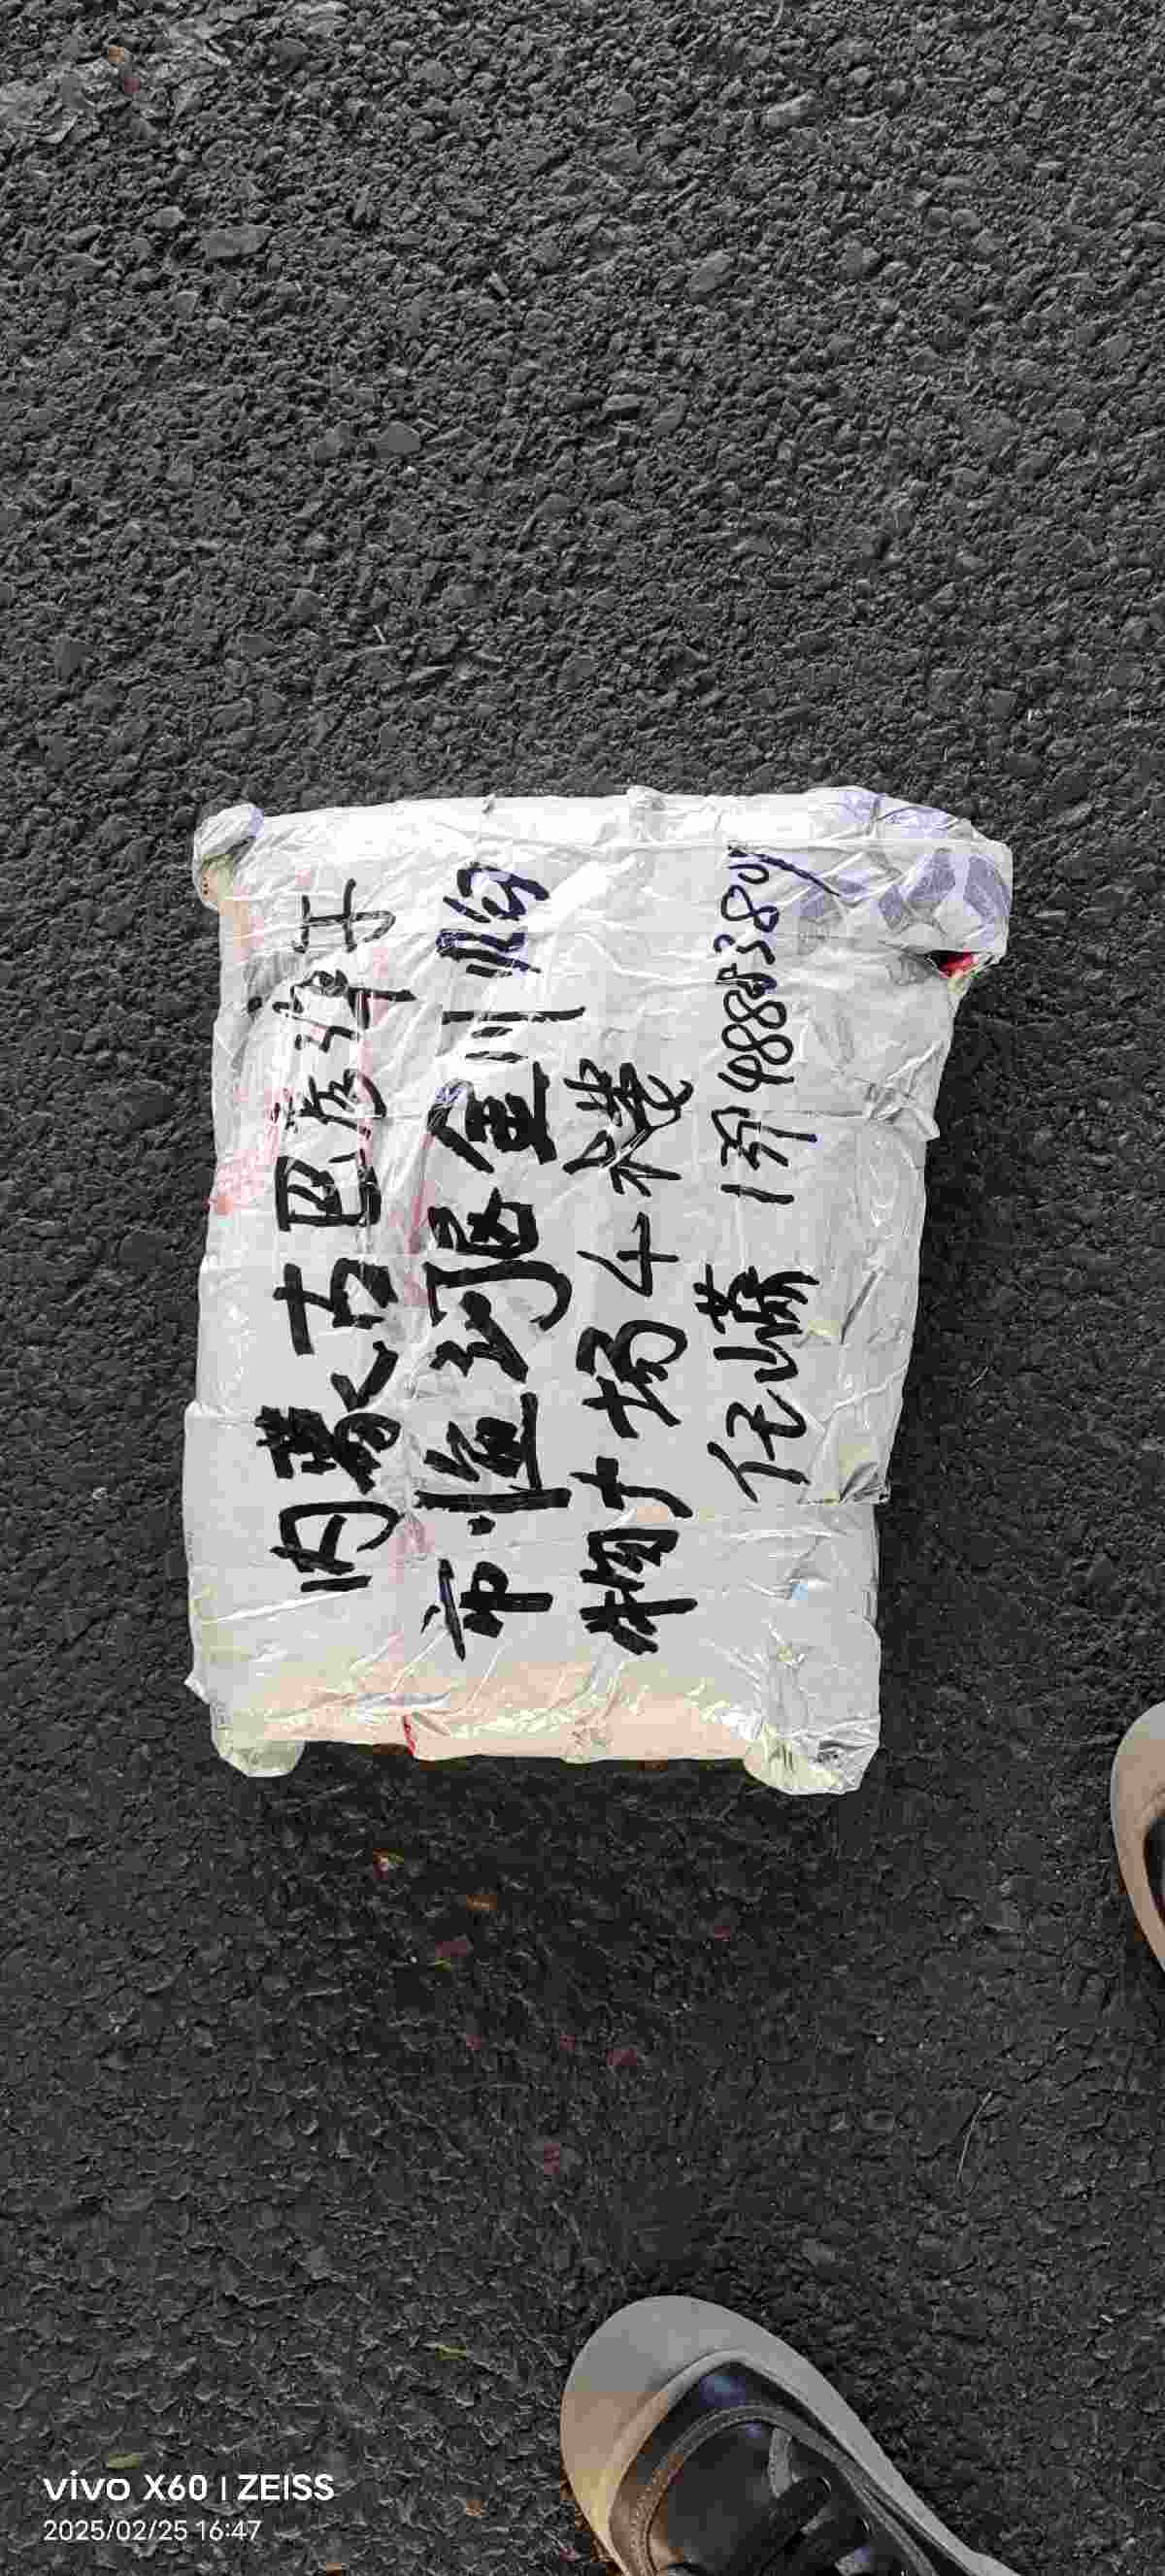 内蒙古巴彦淖尔
市·临河区金川购
物广场4楼
任 13 488
vivo X60 | ZEISS
2025/02/25 16:47